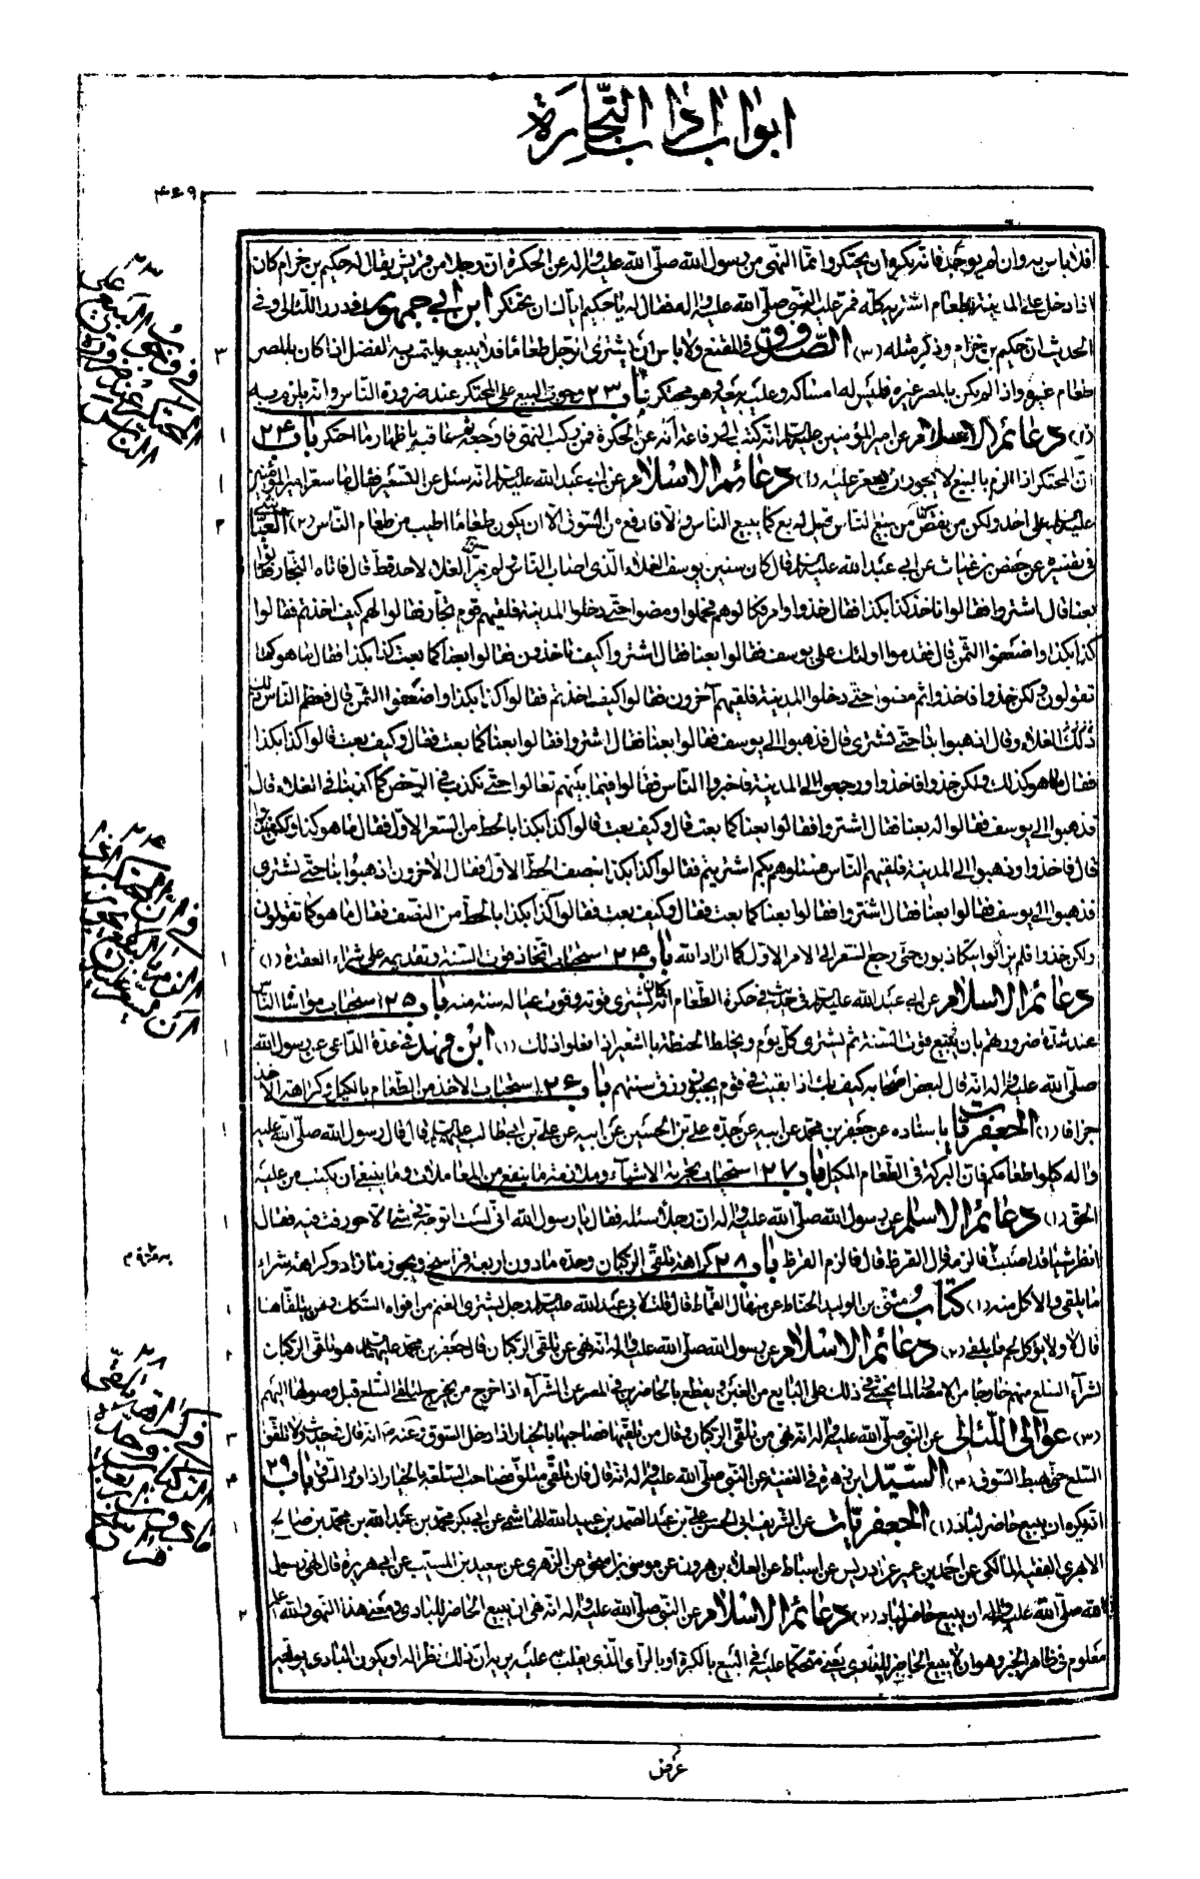 ابواب اداب التجارة
۴۶۹
فلا باس به وان لم يوجد فانه يكره ان يحتكر وانما النهى من رسول الله صلى الله عليه واله عن الحكرة ان رجلا من قريش يقال له حكيم بن حزام كان
اذا دخل على المدينة بطعام اشتريه كله فمر عليه النبى صلى الله عليه واله فقال له يا حكيم اياك ان تحتكر ابن ابي جمهور فى درر اللئالى وفى
الحديث ان حكيم بن حزام وذكر مثله (٣) الصدوق فى المقنع ولا باس ان يشترى الرجل طعاما فلا يبيعه يلتمس به الفضل اذا كان بالمصر
طعام غيره واذا لم يكن بالمصر غيره فليس له امساكه وعليه بيعه وهو محتكر باب ٢٣ وجوب البيع على المحتكر عند ضرورة الناس وانه يلزم به
(١) دعائم الاسلام عن امير المؤمنين عليه السلام انه كتب الى رفاعة انه عن الحكرة فمن ركب النهى فاوجعه ثم عاقبه باظهار ما احتكر باب ٢۴
ان المحتكر اذا الزم بالبيع لا يجوز ان يسعر عليه (١) دعائم الاسلام عن ابى عبد الله عليه السلام انه سئل عن التسعير فقال ما سعر امير المؤمنين
عليه السلام على احد ولكن من نقص عن بيع الناس قيل له بع كما يبيع الناس والا فارفع من السوق الا ان يكون طعاما اطيب من طعام الناس (٢) العياشى
فى تفسيره عن حفص بن غياث عن ابى عبد الله عليه السلام قال كان سنين يوسف الغلاء الذى اصاب الناس ولم يتمن الغلاء لاحد قط قال فاتاه التجار فقالوا
بعنا قال اشتروا فقالوا ناخذ كذا بكذا فقال خذوا وامر فكالوهم فحملوا ومضوا حتى دخلوا المدينة فلقيهم قوم تجار فقالوا لهم كيف اخذتم فقالوا
كذا بكذا واضعفوا الثمن قال فقدموا اولئك على يوسف فقالوا بعنا فقال اشتروا كيف تاخذون فقالوا بعنا كما بعت كذا بكذا فقال ما هو كما
تقولون ولكن خذوا فاخذوا ثم مضوا حتى دخلوا المدينة فلقيهم آخرون فقالوا كيف اخذتم فقالوا كذا بكذا واضعفوا الثمن قال فعظم الناس
ذلك الغلاء وقال اذهبوا بنا حتى نشترى قال فذهبوا الى يوسف فقالوا بعنا فقال اشتروا فقالوا بعنا كما بعت فقال وكيف بعت قالوا كذا بكذا
فقال ما هو كذلك ولكن خذوا فاخذوا ورجعوا الى المدينة فاخبروا الناس فقالوا فيما بينهم تعالوا حتى نكذب فى الرخص كما كذبنا فى الغلاء قال
فذهبوا الى يوسف فقالوا له بعنا فقال اشتروا فقالوا بعنا كما بعت قال وكيف بعت قالوا كذا بكذا بالحط من السعر الاول فقال ما هو كذا ولكن خذوا
قال فاخذوا وذهبوا الى المدينة فلقيهم الناس فسئلوهم بكم اشتريتم فقالوا كذا بكذا بنصف الحط الاول فقال الآخرون اذهبوا بنا حتى نشترى
فذهبوا الى يوسف فقالوا بعنا فقال اشتروا فقالوا بعنا كما بعت فقال وكيف بعت فقالوا كذا بكذا بالحط من النصف فقال ما هو كما تقولون
ولكن خذوا فلم يزالوا يتكاذبون حتى رجع السعر الى الامر الاول كما اراد الله باب ٢۴ استحباب اتخاذ قوت السنة وتقديمه على شراء العقدة (١)
دعائم الاسلام عن ابى عبد الله عليه السلام فى حديث فى حكرة الطعام انه كان يشترى قوته وقوت عياله سنة منه باب ٢۵ استحباب مواساة الناس
عند شدة ضرورتهم بان يبيع قوت السنة ثم يشترى كل يوم ويخلط الحنطة بالشعير اذا فعلوا ذلك (١) ابن فهد فى عدة الداعى عن رسول الله
صلى الله عليه واله انه قال لبعض اصحابه كيف بك اذا بقيت فى قوم يحبون رزق سنتهم باب ٢۶ استحباب الاخذ من الطعام بالكيل وكراهة الاخذ
جزافا (١) الجعفريات باسناده عن جعفر بن محمد عن ابيه عن جده على بن الحسين عن ابيه عن على بن ابى طالب عليهم السلام قال قال رسول الله صلى الله عليه
واله كيلوا طعامكم فان البركة فى الطعام المكيل باب ٢٧ استحباب تجربة الاشياء وملازمة ما ينفع من المعاملات وما ينبغى ان يكتب من عليه
الحق (١) دعائم الاسلام عن رسول الله صلى الله عليه واله ان رجلا سئله فقال يا رسول الله انى لست اتوجه فى شئ الا حورفت فيه فقال
انظر شيئا قد اصبت فالزمه قال القرظ قال فالزم القرظ باب ٢٨ كراهة تلقى الركبان وحده ما دون اربعة فراسخ ويجوز ما زاد وكراهة شراء
ما يتلقى والاكل منه (١) كتاب مثنى بن الوليد الحناط عن منهال القماط قال قلت لابى عبد الله عليه السلام رجل يشترى الغنم من افواه السكك وممن يتلقاها
قال لا ولا يؤكل لحم ما يلقى (٢) دعائم الاسلام عن رسول الله صلى الله عليه واله انه نهى عن تلقى الركبان قال جعفر بن محمد عليهما السلام هو تلقى الركبان
لشراء السلع منهم خارجا من الامصار لما يخشى فى ذلك على البايع من الغبن ويقطع بالحاضرين فى المصر عن الشراء اذا خرج من يخرج لتلقى السلع قبل وصولها اليهم
(٣) عوالى اللئالى عن النبى صلى الله عليه واله انه نهى عن تلقى الركبان وقال من تلقيها فصاحبها بالخيار اذا دخل السوق وعنه انه قال فى حديث ولا تلقوا
السلع حتى يهبط السوق (۴) السيد ابن زهرة فى الغنية عن النبى صلى الله عليه واله انه قال فان تلقى متلق فصاحب السلعة بالخيار اذا ورد السوق باب ٢٩
انه يكره ان يبيع حاضر لباد (١) الجعفريات عن الشريف ابى الحسن على بن عبد الصمد بن عبيد الله الهاشمى عن ابى بكر محمد بن عبد الله بن محمد بن صالح
الابهرى الفقيه المالكى عن احمد بن عمير عن ادريس عن اسباط عن العلاء بن هرون عن موسى بن اسحق عن الزهرى عن سعيد بن المسيب عن ابى هريرة قال نهى رسول
الله صلى الله عليه واله ان يبيع حاضر لباد (٢) دعائم الاسلام عن النبى صلى الله عليه واله انه نهى ان يبيع الحاضر للبادى ومعنى هذا النهى والله اعلم
معلوم فى ظاهر الخبر وهو ان لا يبيع الحاضر للبادى يعنى متحكما عليه فى البيع بالكره او بالراى الذى يغلب عليه يريه ان ذلك نظر له او يكون البادى يوليه
عرض